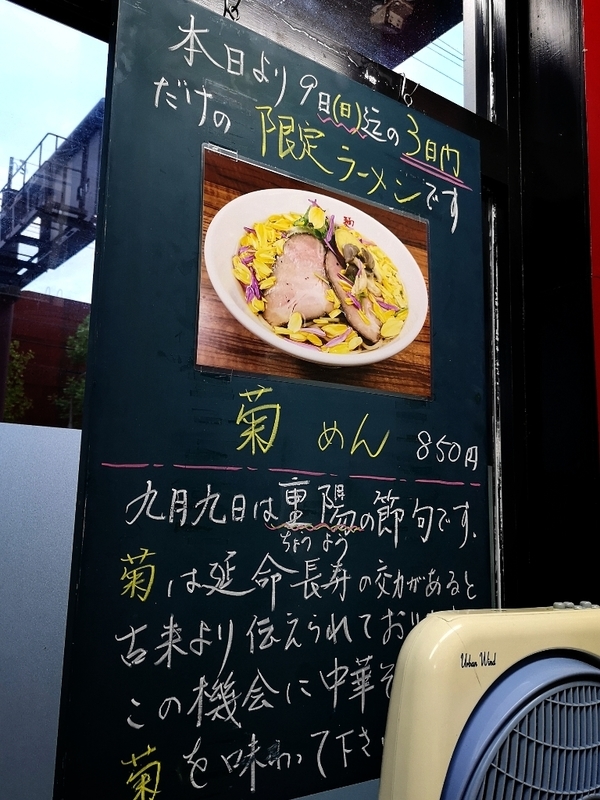 本日より9日(日)迄の3日間
だけの 限定ラーメンです
菊めん 850円
九月九日は重陽の節句です。
ちょうよう
菊は延命長寿の効があると
古来より伝えられており
この機会に中華そ
菊を味わって下さ
Urban Wind